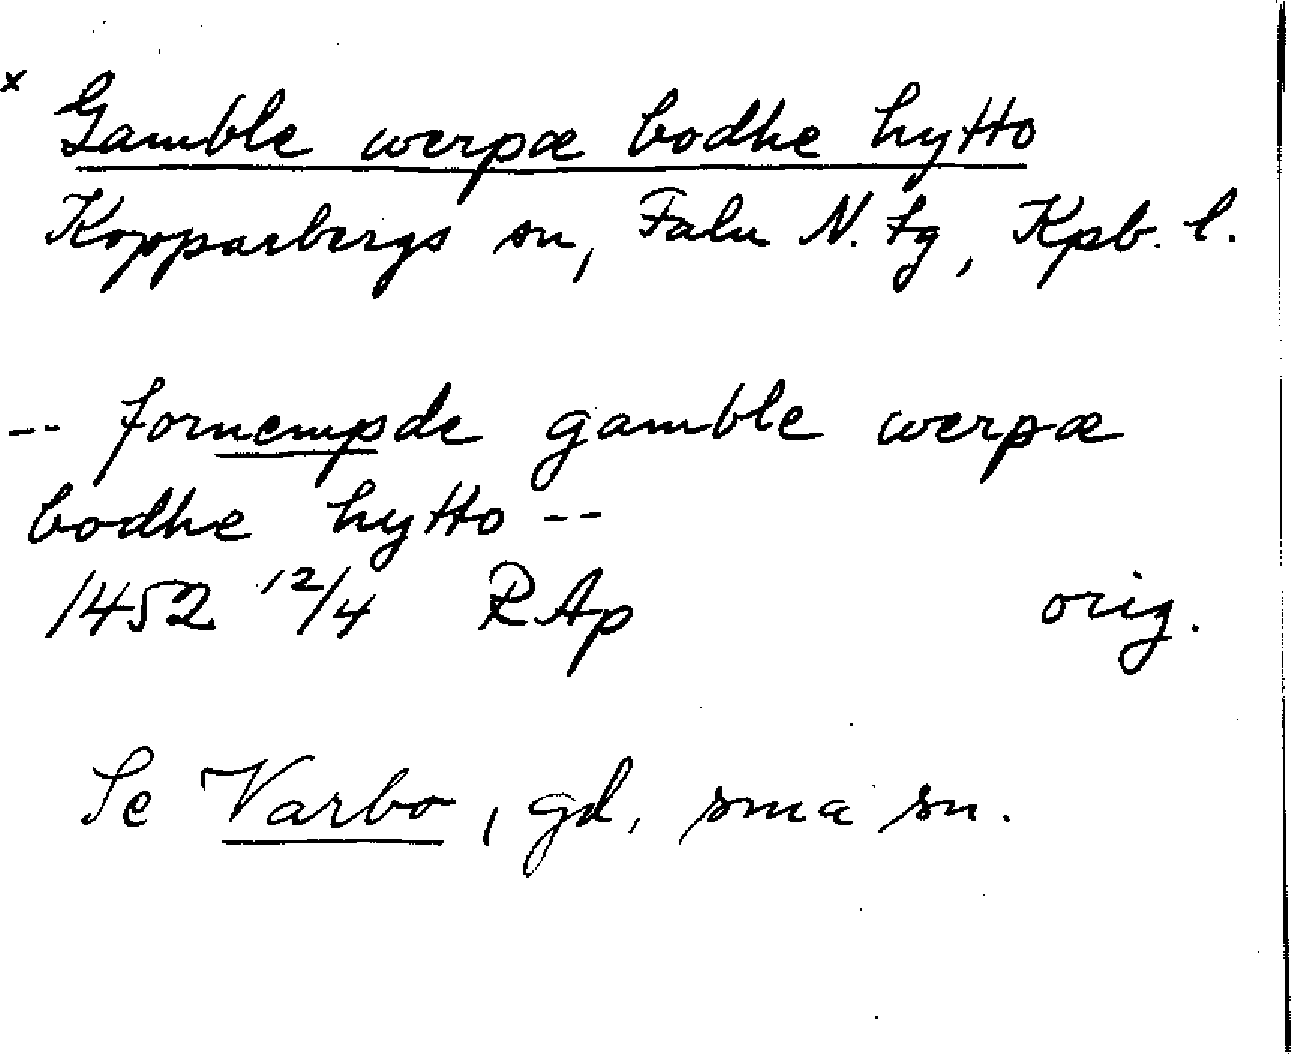 x Gamble werpæ bodhe hytto
Kopparbergs sn, Falu N. fg, Kpb. l.
-- fornempde gamble werpæ
bodhe hytto --
1452 12/4 RAp orig.
Se Varbo, gd, sma sn.